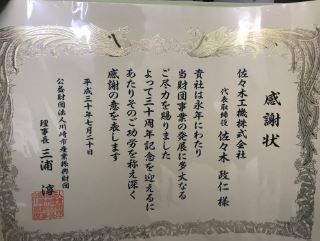 感謝状
佐々木工機株式会社
代表取締役 佐々木政仁様
貴社は永年にわたり
当財団事業の発展に多大なる
ご尽力を賜りました
よって三十周年記念を迎えるに
あたりそのご功労を称え深く
感謝の意を表します
平成三十年七月二十日
公益財団法人川崎市産業振興財団
理事長 三浦淳